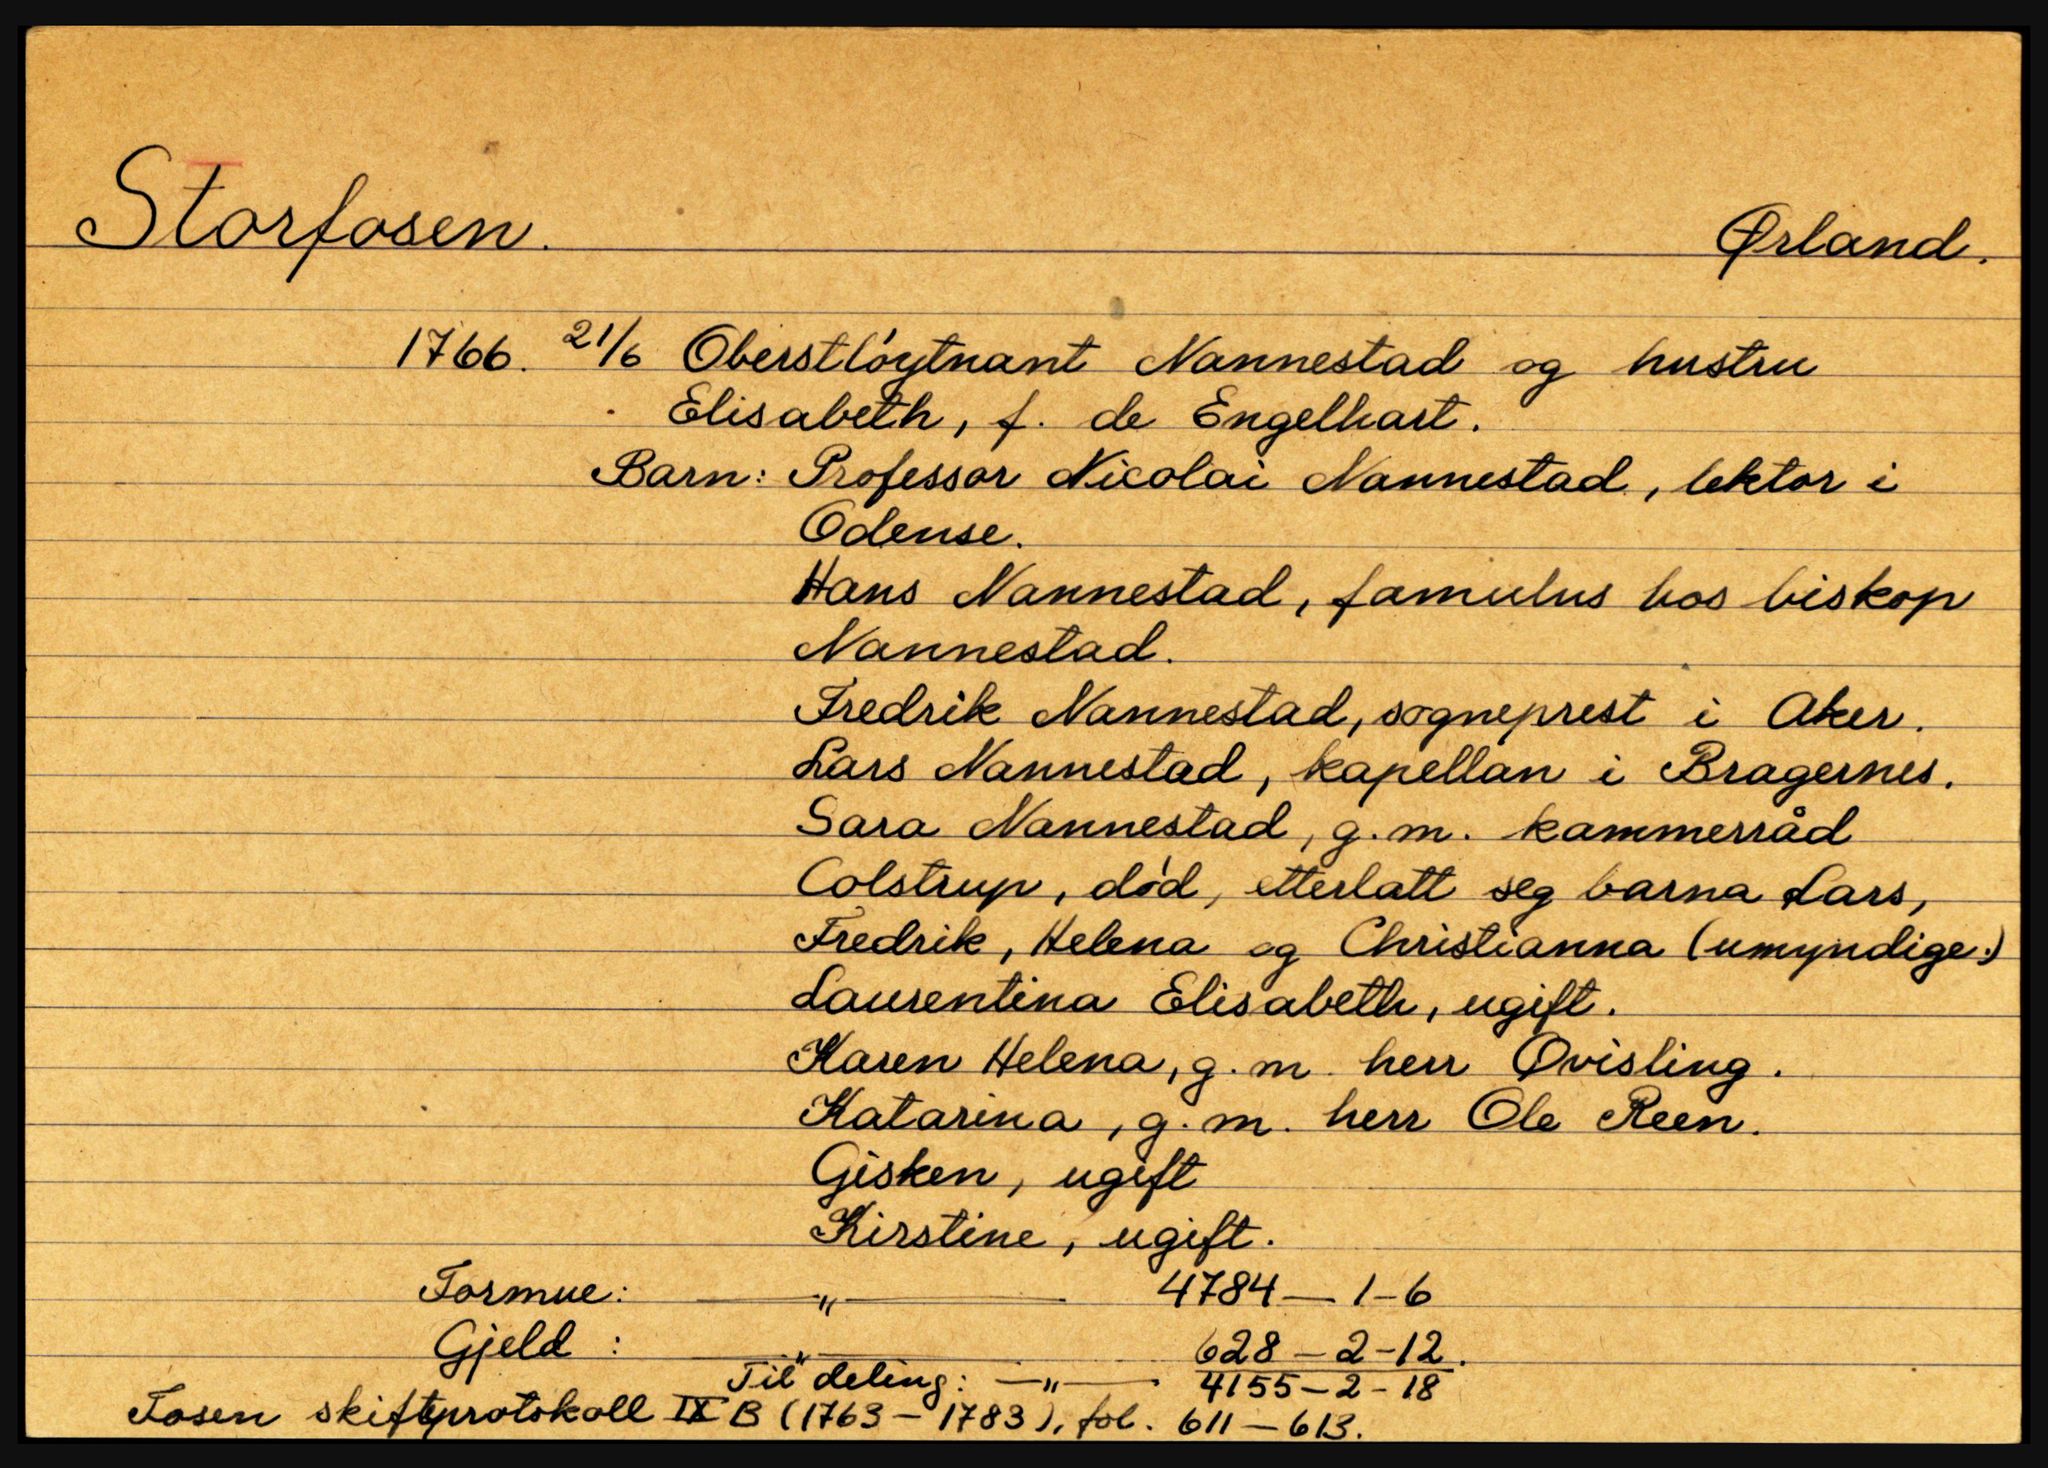 Storfosen. Ørland.
1766. 21/6 Oberstløytnant Nannestad og hustru
Elisabeth, f. de Engelhart.
Barn: Professor Nicolai Nannestad, lektor i
Odense.
Hans Nannestad, famulus hos biskop
Nannestad.
Fredrik Nannestad, sogneprest i Aker.
Lars Nannestad, kapellan i Bragernes.
Sara Nannestad, g.m. kammerråd
Colstrup, død, etterlatt seg barna Lars,
Fredrik, Helena og Christianna (umyndige.)
Laurentina Elisabeth, ugift.
Karen Helena, g.m. herr Qvisling.
Katarina, g.m. herr Ole Reen.
Gisken, ugift
Kirstine, ugift.
Formue: —"— 4784 — 1 - 6
Gjeld : —"— 628 — 2 - 12.
Til deling: —"— 4155 - 2 - 18
Fosen skifteprotokoll IX B (1763 - 1783), fol. 611 - 613.